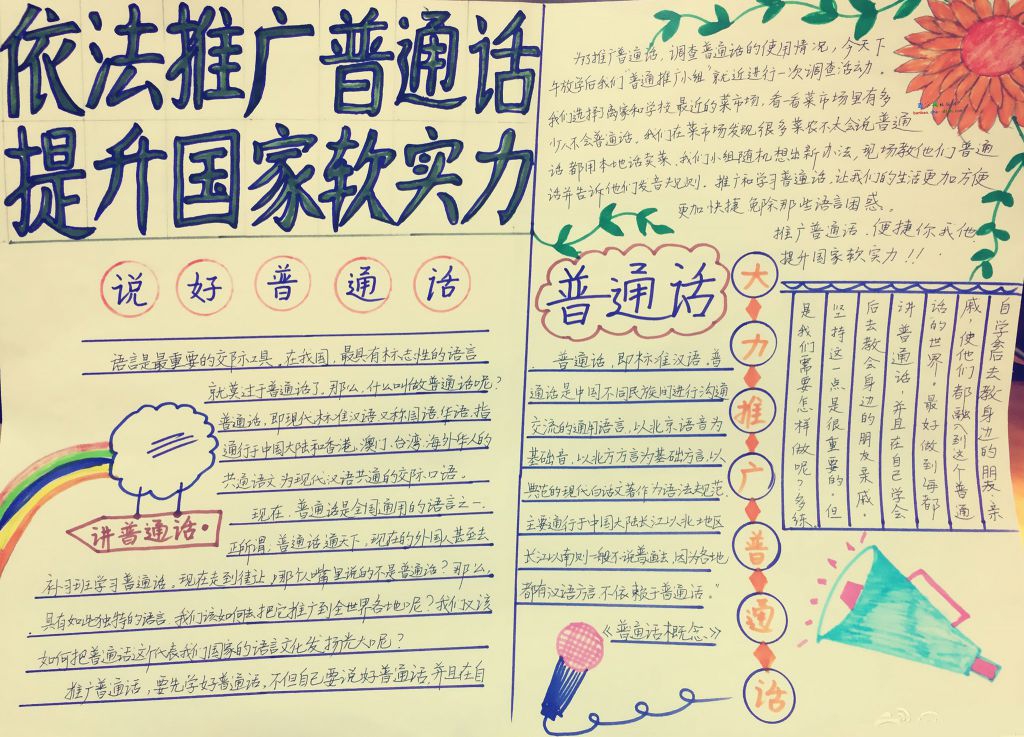 依法推广普通话
提升国家软实力
说好普通话
语言是最重要的交际工具。在我国，最具有标志性的语言
就莫过于普通话了。那么，什么叫做普通话呢？
普通话，即现代标准汉语又称国语华语，指
通行于中国大陆和香港，澳门，台湾，海外华人的
共通语文为现代汉语共通的交际口语。
现在，普通话是全国通用的语言之一，
正所谓，普通话通天下，现在的外国人甚至去
补习班学习普通话，现在走到街上，那个人嘴里说的不是普通话？那么，
具有如此独特的语言，我们该如何去把它推广到全世界各地呢？我们又该
如何把普通话这个代表我们国家的语言文化发扬光大呢？
推广普通话，要先学好普通话，不但自己要说好普通话，并且在自
讲普通话。
为了推广普通话，调查普通话的使用情况，今天下
午放学后我们"普通推广小组"就近进行一次调查活动。
我们选择了离家和学校最近的菜市场，看一看菜市场里有多
少人不会普通话。我们在菜市场发现很多菜农不太会说普通
话都用本地话卖菜，我们小组随机想出新办法，现场教他们普通
话并告诉他们发音规则。推广和学习普通话，让我们的生活更加方便
更加快捷免除那些语言困惑。
推广普通话，便捷你我他，
提升国家软实力！！
普通话
普通话，即标准汉语。普
通话是中国不同民族间进行沟通
交流的通用语言，以北京语音为
基础音，以北方方言为基础方言，以
典范的现代白话文著作为语法规范。
主要通行于中国大陆长江以北地区
长江以南则一般不说普通话，因为各地
都有汉语方言，不依赖于普通话。"
《普通话概念》
大力推广普通话
自学会后去教身边的朋友，亲
戚，使他们都融入到这个普通
话的世界。最好做到每都
讲普通话，并且在自己学会
后去教会身边的朋友亲戚。
坚持这一点是很重要的。但
是我们需要怎样做呢？多练